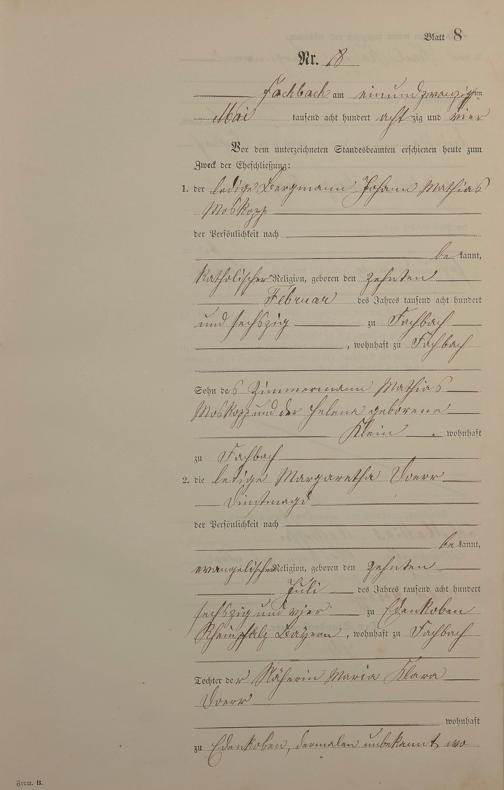 Blatt 8
Nr. 18
Fachbach am einundzwanzigsten
Mai tausend acht hundert acht zig und vier
Vor dem unterzeichneten Standesbeamten erschienen heute zum
Zweck der Eheschließung:
1. der ledige Bergmann Johann Mathias
Moskopp
der Persönlichkeit nach
be kannt,
katholischer Religion, geboren den zehnten
Februar des Jahres tausend acht hundert
und sechszig zu Fachbach
, wohnhaft zu Fachbach
Sohn des Zimmermann Mathias
Moskopp und der Helena geborene
Klein wohnhaft
zu Fachbach
2. die ledige Margaretha Doerr
Dienstmagd
der Persönlichkeit nach
be kannt,
evangelischer Religion, geboren den zehnten
Juli des Jahres tausend acht hundert
sechszig und vier zu Edenkoben
Rheinpfalz Bayern, wohnhaft zu Fachbach
Tochter der Näherin Maria Klara
Doerr
wohnhaft
zu Edenkoben, dermalen unbekannt wo
Form. B.